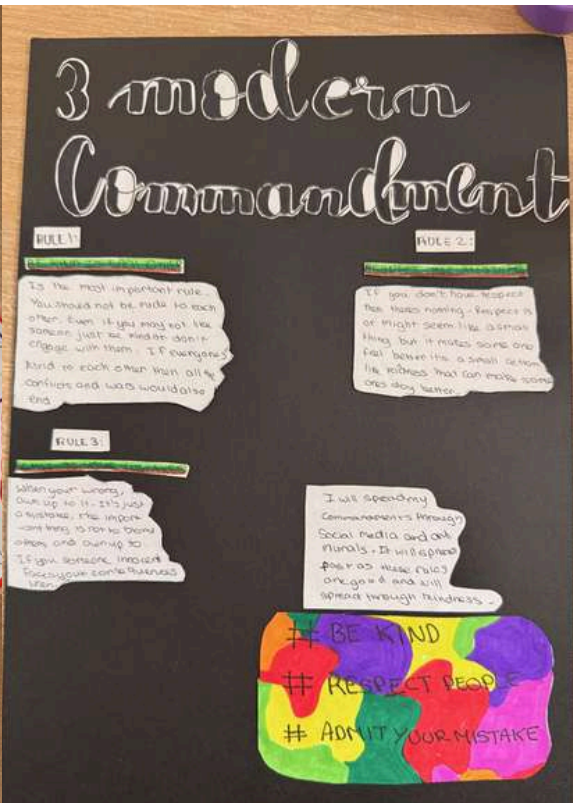 3 modern
Commandment
RULE 1:
BE KIND TO EACH OTHER
Is the most important rule.
You should not be rude to each
other. Even if you may not like
someon just be kind or don't
engage with them. If everyones
kind to each other then all the
conflicts and wars would also
end.
RULE 2:
If you don't have respect
then theres nothing. Respect is
or might seem like a small
thing but it makes some one
feel better its a small action
like kidness that can make some
ones day better.
RULE 3:
When your wrong,
own up to it. It's just
a mistake, the import
-ant thing is not to blame
others and own up to
If you someone innocent
faces your consequences
then
I will spread my
Commandments through
Social media and art
murals. It will spread
fast as these rules
are good and will
spread through kindness.
# BE KIND
# RESPECT PEOPLE
# ADMIT YOUR MISTAKE